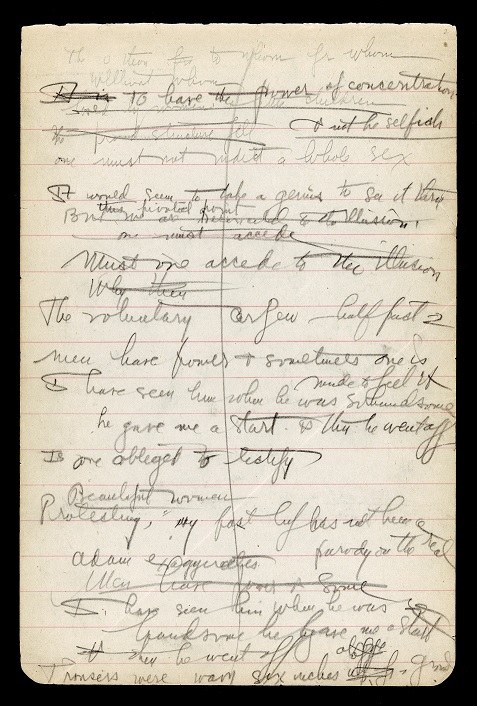 to whom for whom
without whom
It is to have the power of concentration
the children
the proud structure fell & not be selfish
one must not indict a whole sex
It would seem to take a genius to see it thru
this pivotal point
to the illusion
one must accede
Must one accede to the illusion
Why then
The voluntary curfew half past 2
men have power & sometimes one is
made to feel it
I have seen him when he was so handsome
he gave me a start. & then he went off
Is one obliged to testify
Beautiful women
Protesting, "my past life has not been a
parody on the real
adam exaggerates
Men have power & some
I have seen him when he was so
handsome he gave me a start
he went off
Trousers were wavy six inches above ground